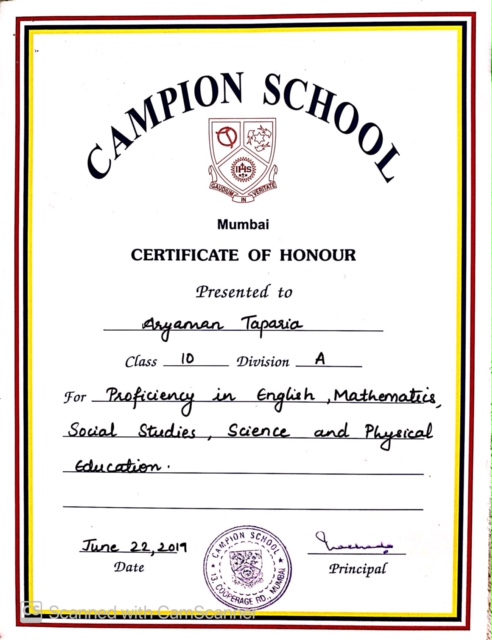 CAMPION SCHOOL
IHS
GAUDIUM IN VERITATE
Mumbai
CERTIFICATE OF HONOUR
Presented to
Aryaman Taparia
Class 10 Division A
For Proficiency in English, Mathematics,
Social Studies, Science and Physical
Education.
June 22, 2019
Date
CAMPION SCHOOL
13, COOPERAGE RD., MUMBAI
Principal
Scanned with CamScanner